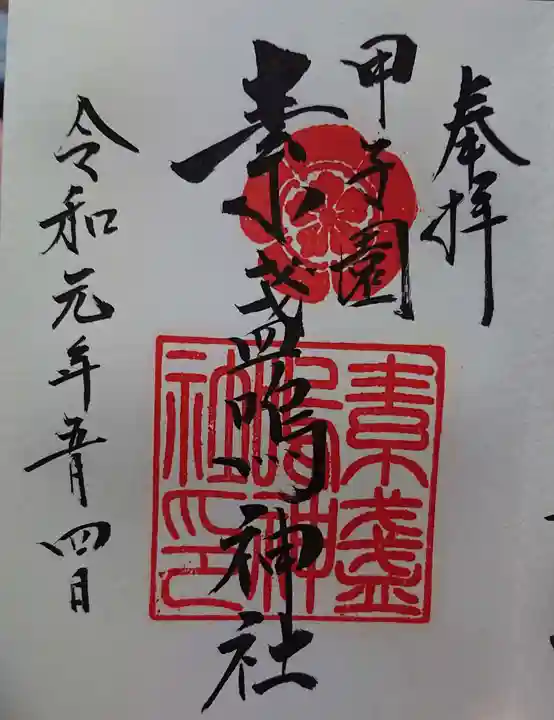 奉拝
甲子園
素盞嗚神社
令和元年五月四日
素盞
嗚神
社印